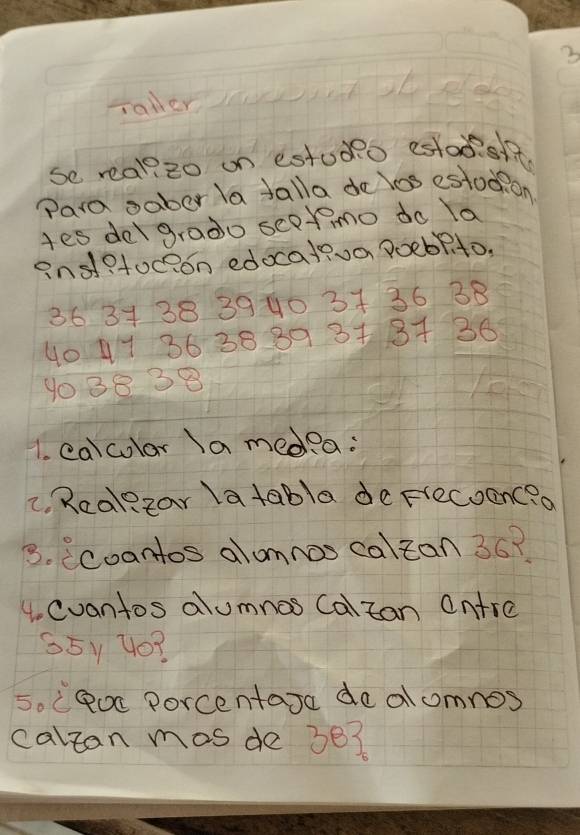 Taller
Se realizo un estudio estadist
Para saber la talla de los estudian
tes del grado septimo de la
institución educativa pueblito.
36 37 38 39 40 37 36 38
40 41 36 38 39 37 37 36
40 38 38
1. calcular la media:
2. Realizar la tabla de Frecuencia
3. ¿Cuantos alumnos calzan 36?
4. Cuantos alumnos calzan entre
35 y 40?
5. ¿Que Porcentaje de alumnos
calzan mas de 38?
3